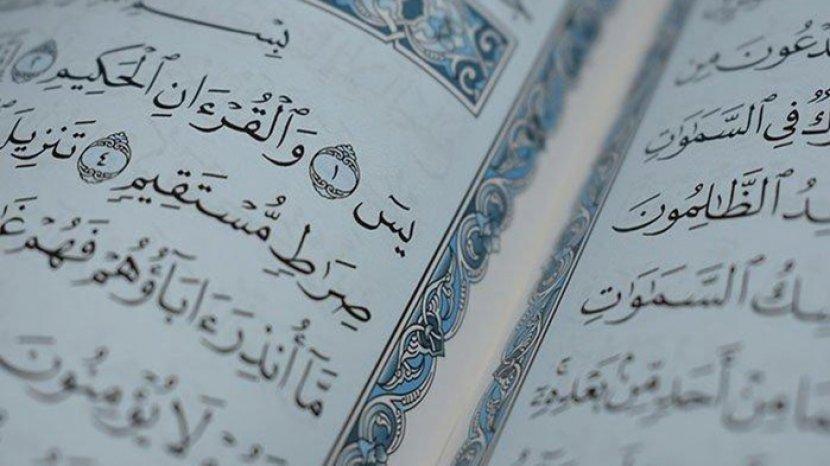 مِن
فِي ٱلسَّمَٰوَٰتِ
ٱلظَّٰلِمُونَ
ٱلسَّمَٰوَٰتِ
مِنْ أَحَدٍ مِّنۢ بَعْدِهِۦٓ
بِسْمِ
يسٓ ١ وَٱلْقُرْءَانِ ٱلْحَكِيمِ ٢
صِرَٰطٍ مُّسْتَقِيمٍ ٤ تَنزِيلَ
مَّآ أُنذِرَ ءَابَآؤُهُمْ فَهُمْ
لَا يُؤْمِنُونَ